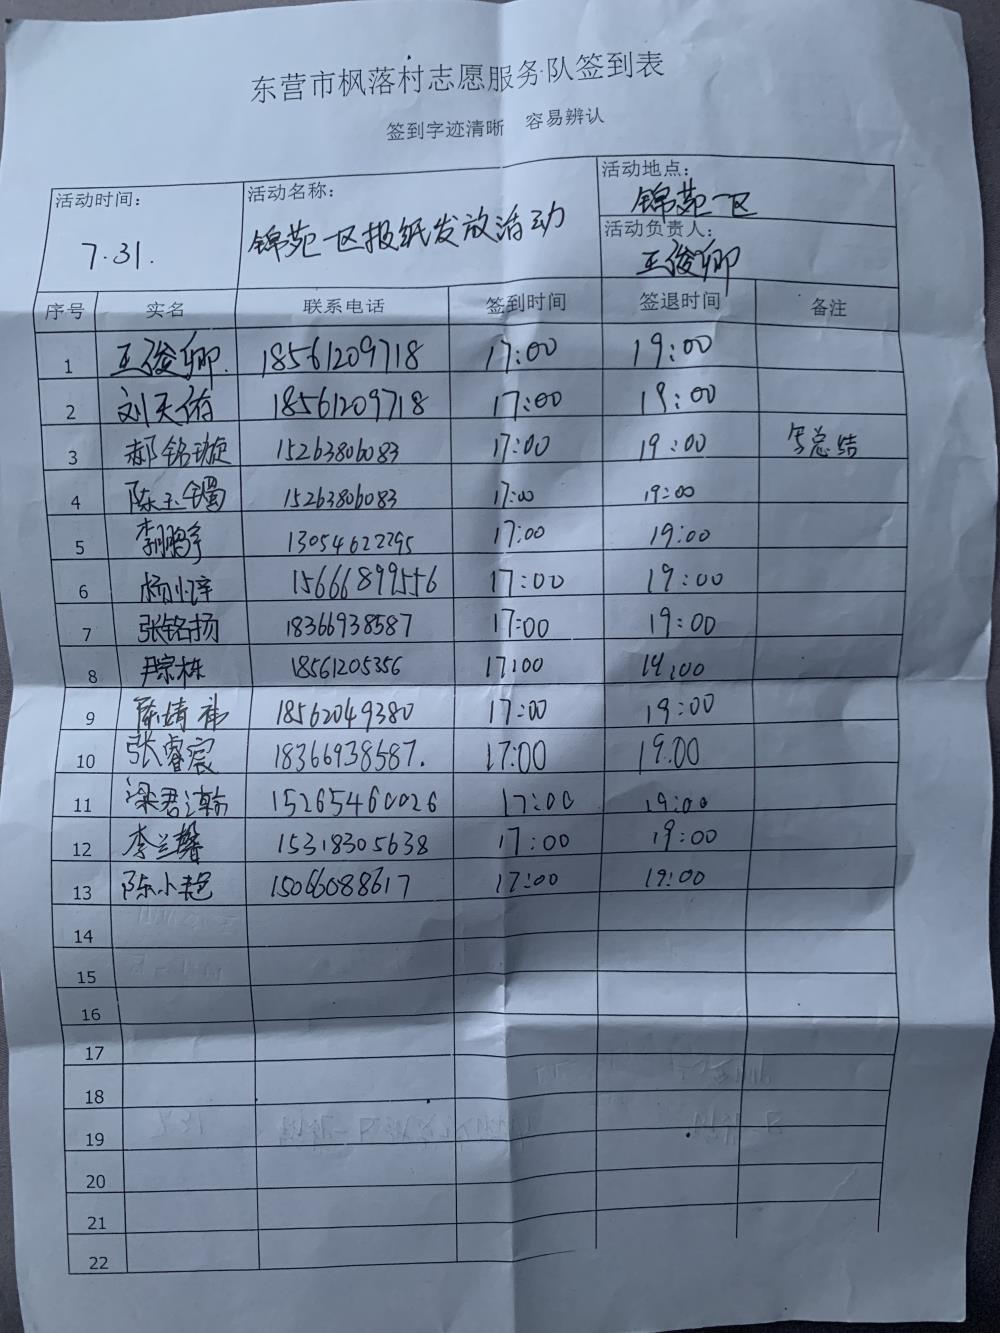 东营市枫落村志愿服务队签到表
签到字迹清晰 容易辨认
活动时间: 7.31.
活动名称: 锦苑一区报纸发放活动
活动地点: 锦苑一区
活动负责人: 王俊卿
序号 实名 联系电话 签到时间 签退时间 备注
1 王俊卿. 18561209718 17:00 19:00
2 刘天佑 18561209718 17:00 19:00
3 郝铭璇 15263806083 17:00 19:00 写总结
4 陈玉镯 15263806083 17:00 19:00
5 13054622295 17:00 19:00
6 杨 15666899556 17:00 19:00
7 张铭扬 18366938587 17:00 19:00
8 尹宗栋 18561205356 17:00 19:00
9 陈婧 18562049380 17:00 19:00
10 张睿宸 18366938587. 17:00 19:00
11 梁君瀚 15265460026 17:00 19:00
12 李兰馨 15318305638 17:00 19:00
13 陈小艳 15066088617 17:00 19:00
14
15
16
17
18
19
20
21
22